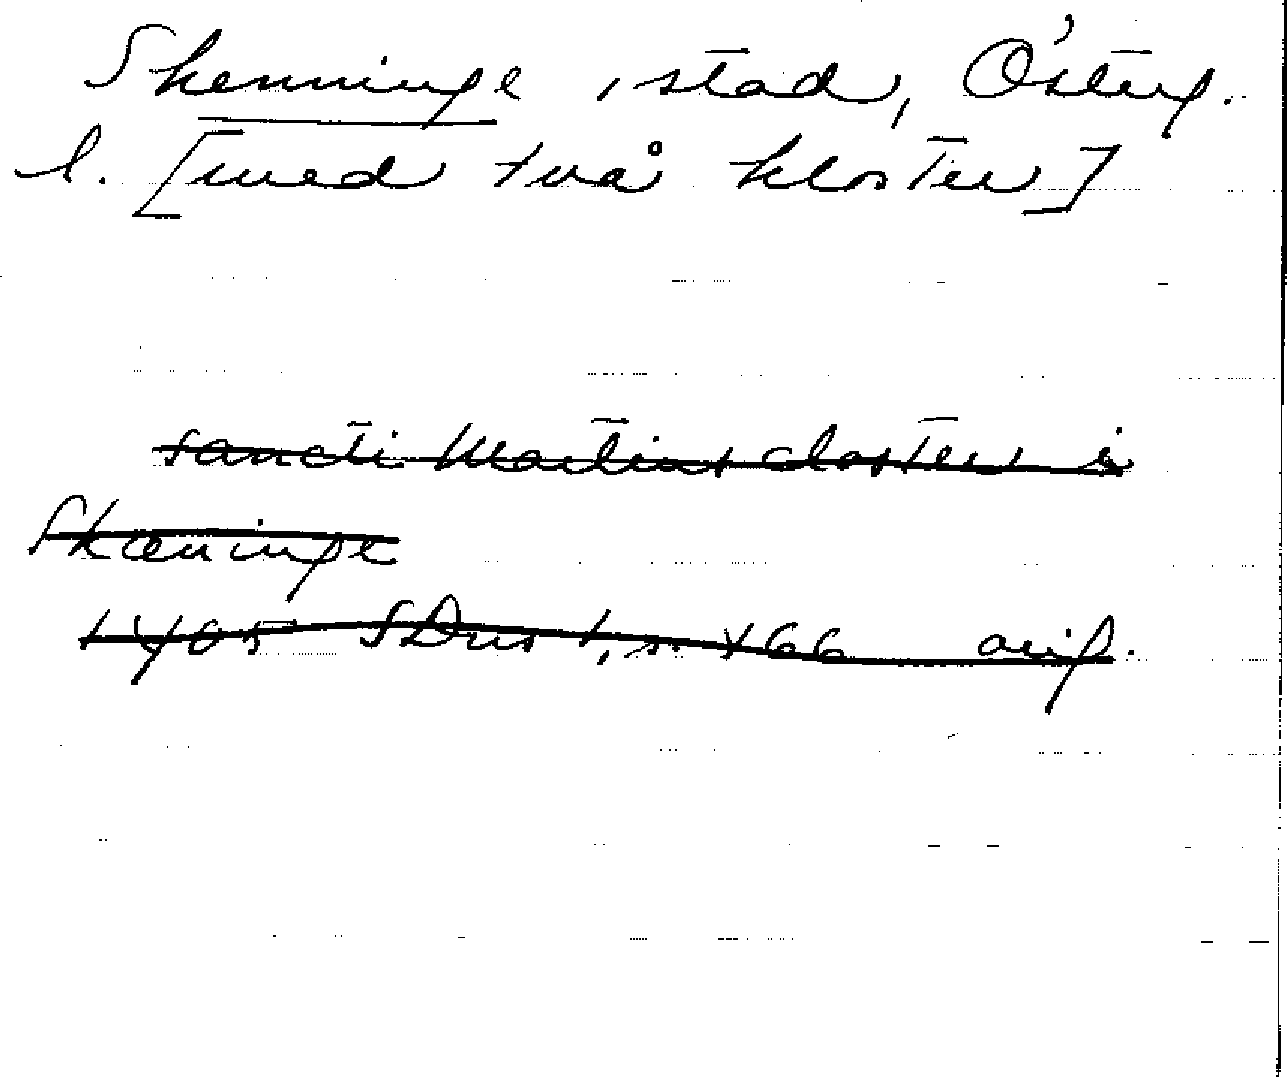 Skenninge, stad, Österg.
l. [med två kloster]
sancti Martins closter i
Skæninge
1405 SDns 1, s. 466 orig.